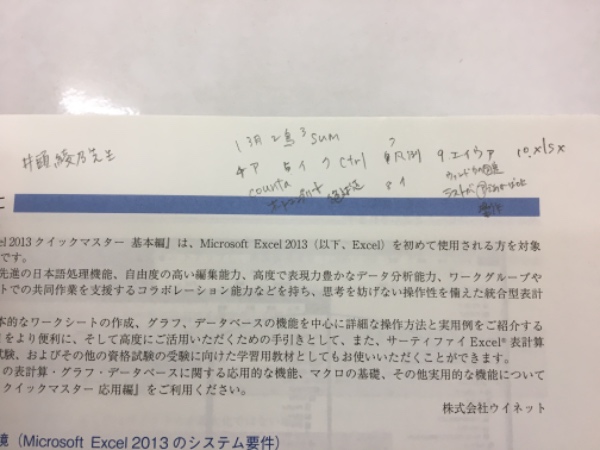 井頭 綾乃先生
1 3月 2 3 SUM
4 ア 5 イ ク Ctrl 凡例 9 エイウア 10 .xlsx
counta ア イ
に
el 2013 クイックマスター 基本編』は、Microsoft Excel 2013(以下、Excel)を初めて使用される方を対象
です。
先進の日本語処理機能、自由度の高い編集能力、高度で表現力豊かなデータ分析能力、ワークグループや
トでの共同作業を支援するコラボレーション能力などを持ち、思考を妨げない操作性を備えた統合型表計
本的なワークシートの作成、グラフ、データベースの機能を中心に詳細な操作方法と実用例をご紹介する
をより便利に、そして高度にご活用いただくための手引きとして、また、サーティファイ Excel® 表計算
試験、およびその他の資格試験の受験に向けた学習用教材としてもお使いいただくことができます。
の表計算・グラフ・データベースに関する応用的な機能、マクロの基礎、その他実用的な機能について
クイックマスター 応用編』をご利用ください。
株式会社ウイネット
境(Microsoft Excel 2013 のシステム要件)